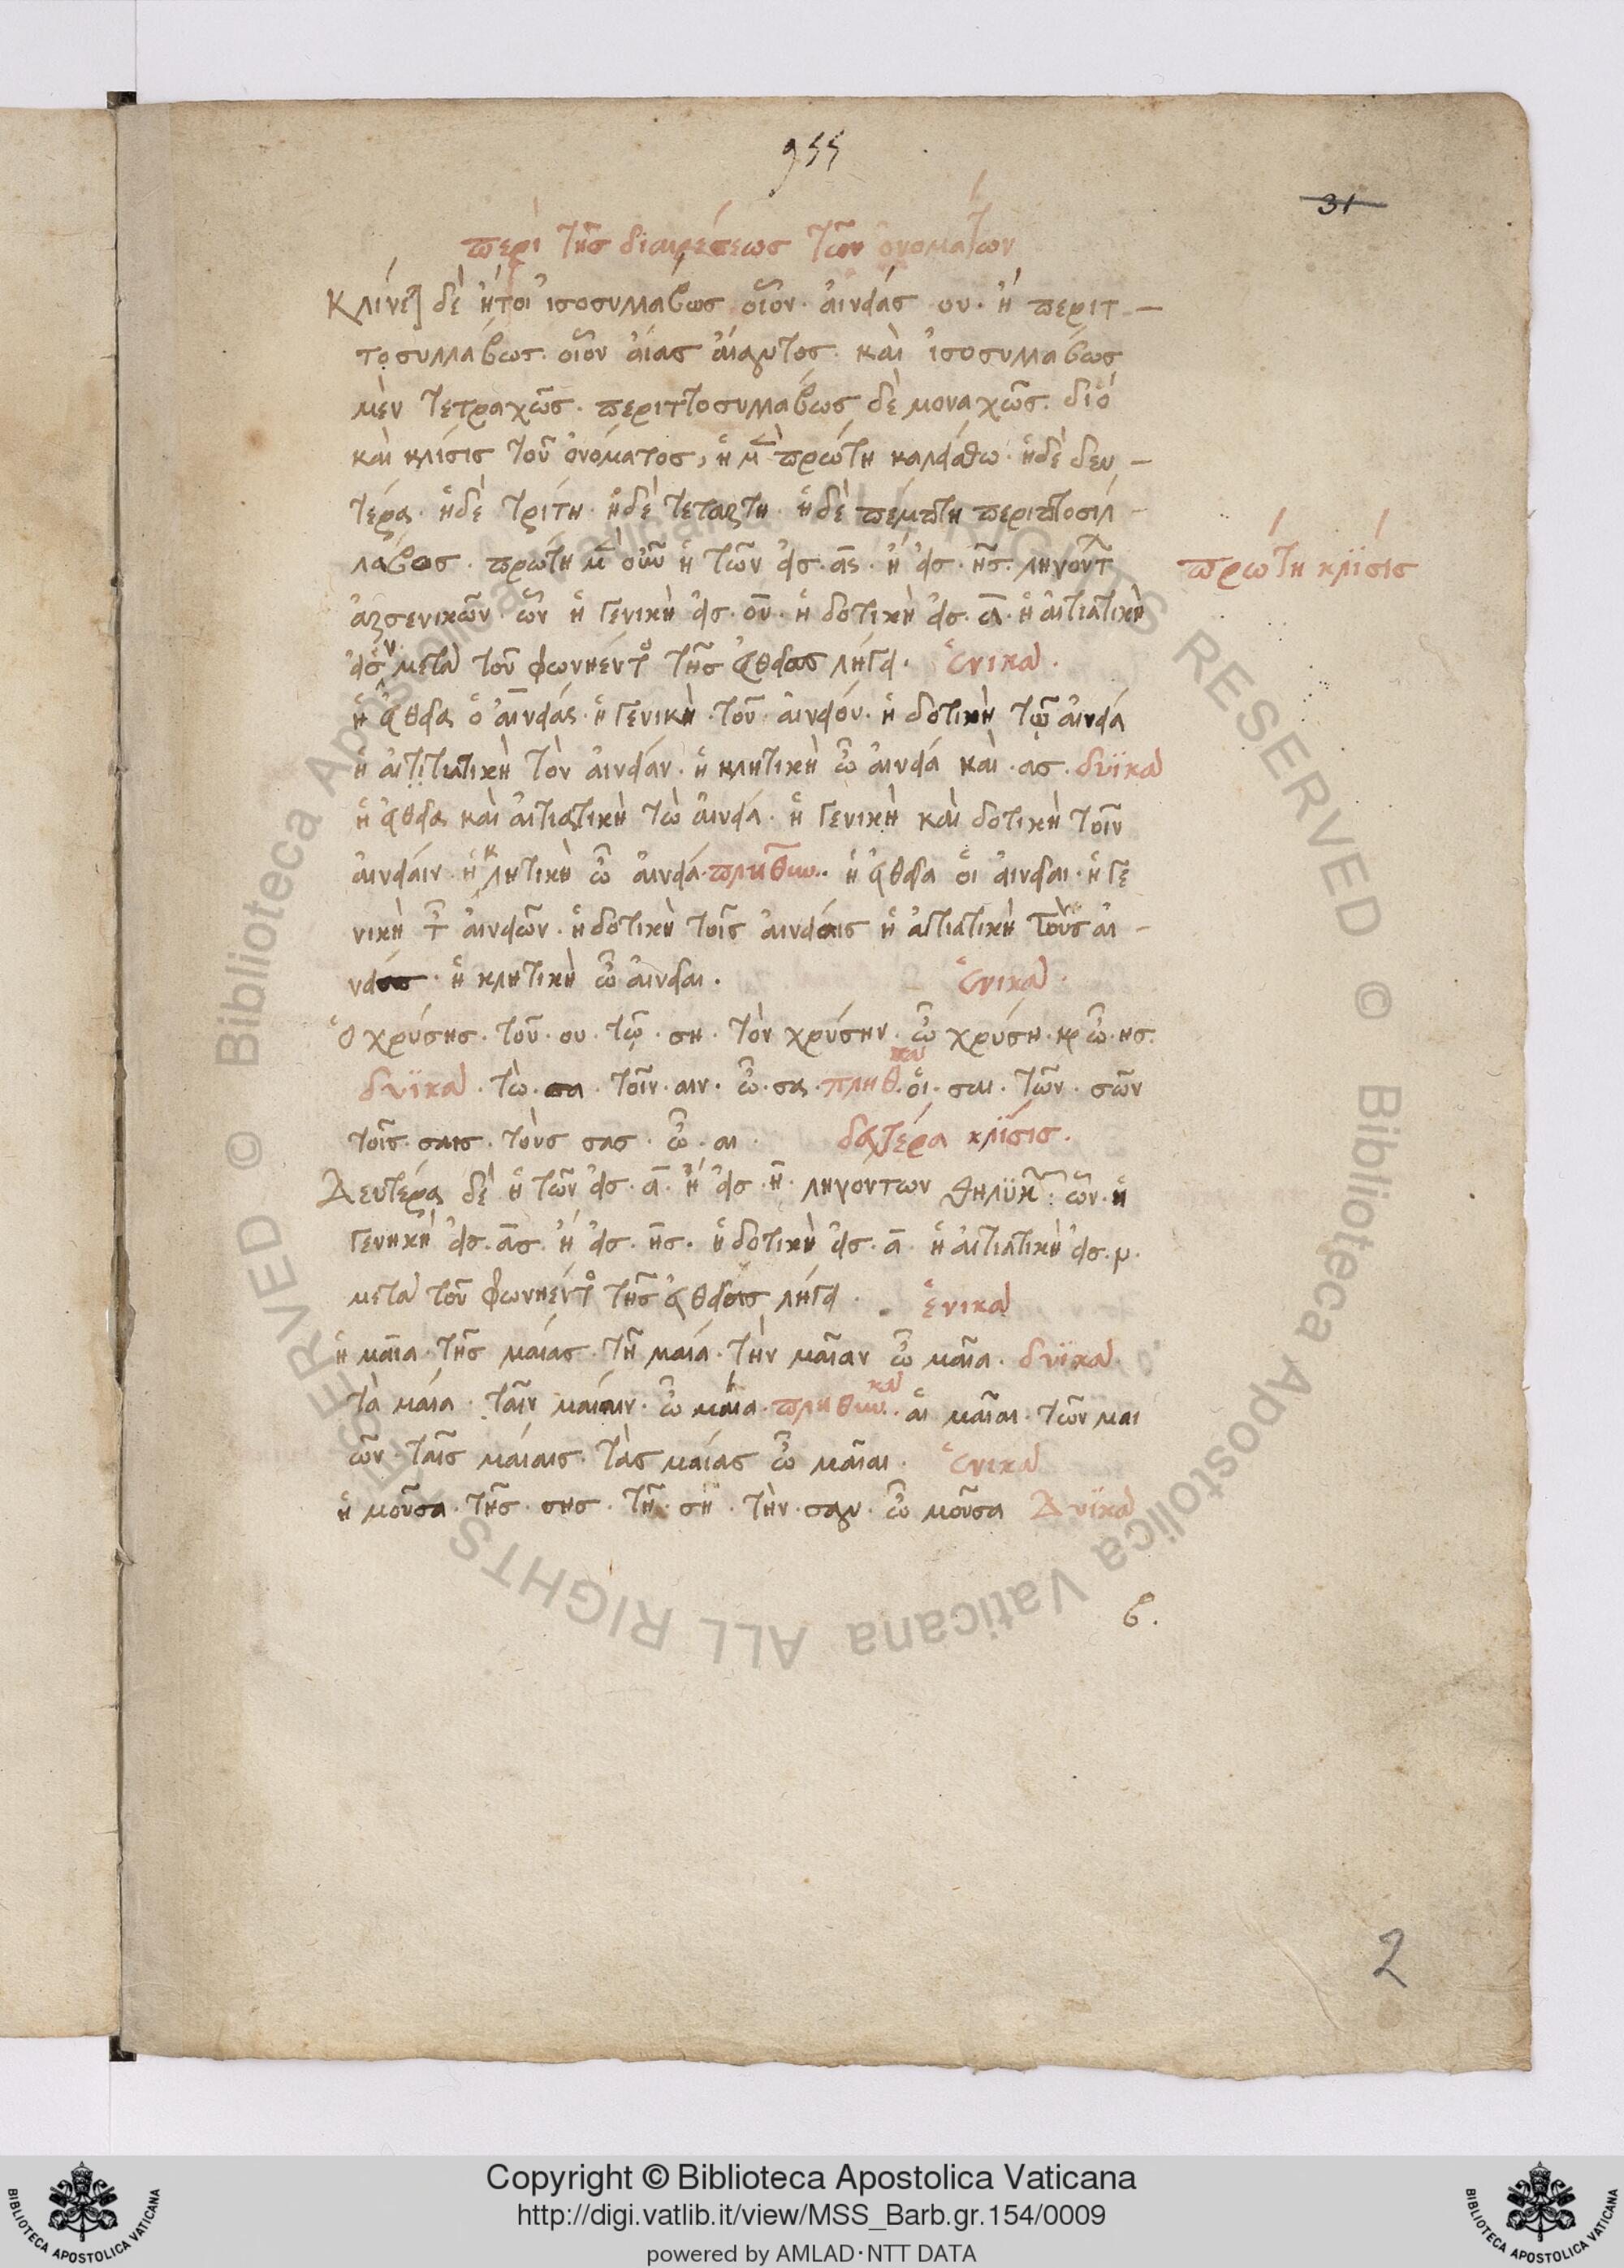 955
31
περὶ τῆς διαιρέσεως τῶν ὀνομάτων
Κλίνε[ται] δὲ ἤτοι ἰσοσυλλάβως οἷον· αἰνείας ου· ἢ περιτ –
τοσυλλάβως· οἷον αἴας αἴαντος· καὶ ἰσοσυλλάβως
μὲν τετραχῶς· περιττοσυλλάβως δὲ μοναχῶς· διὸ
καὶ κλίσις τοῦ ὀνόματος, ἡ μὲν πρώτη καλείσθω· ἡδὲ δευ –
τέρα· ἡδὲ τρίτη· ἡδὲ τετάρτη· ἡδὲ πέμπτη περιττοσιλ –
λάβος· πρώτη μὲν οὖν ἡ τῶν εἰς· ας· ἢ εἰς· ης· ληγόντων
πρώτη κλίσις
ἀρσενικῶν· ὧν ἡ γενικὴ εἰς· ου· ἡ δοτικὴ εἰς· α· ἡ αἰτιατικὴ
εἰς ν μετὰ τοῦ φωνήεντος τῆς εὐθείας λήγει· ἑνικὰ·
ἡ εὐθεῖα ὁ αἰνείας· ἡ γενικὴ· τοῦ αἰνείου· ἡ δοτικὴ τῷ αἰνείᾳ
ἡ αἰτιτιατικὴ τὸν αἰνείαν· ἡ κλητικὴ ὦ αἰνεία καὶ· ας· δυϊκὰ
ἡ εὐθεῖα καὶ αἰτιατικὴ τὼ αἰνεία· ἡ γενικὴ καὶ δοτικὴ τοῖν
αἰνείαιν· ἡ κλητικὴ ὦ αἰνεία· πληθυν· ἡ εὐθεῖα οἱ αἰνεῖαι· ἡ γε
νικὴ τ αἰνειῶν· ἡ δοτικὴ τοῖς αἰνείαις ἡ αἰτιατικὴ τοὺς αἰ –
νείας· ἡ κλητικὴ ὦ αἰνεῖαι· ἑνικὰ·
ὁ χρύσης· τοῦ· ου· τῷ· ση· τὸν χρύσην· ὦ χρύση· καὶ ὦ· ης·
δυϊκὰ· τὼ· σα· τοῖν· αιν· ὦ· σα· πληθ κα· οἱ· σαι· τῶν· σῶν
τοῖς· σαις· τοὺς σας· ὦ· αι· δευτέρα κλίσις·
Δευτέρα δὲ ἡ τῶν εἰς· α· ἢ εἰς· η· ληγόντων θηλυκῶν· ὧν· ἡ
γενηκὴ εἰς· ας· ἢ εἰς· ης· ἡ δοτικὴ εἰς· α· ἡ αἰτιατικὴ εἰς· ν·
μετὰ τοῦ φωνήεντος τῆς εὐθείας λήγει· ἑνικὰ
ἡ μαῖα· τῆς μαίας· τῇ μαία· τὴν μαῖαν ὦ μαῖα· δυϊκὰ
τὰ μαία· ταῖν μαίαιν· ὦ μαία· πληθυν κα· αἱ μαῖαι· τῶν μαι
ῶν· ταῖς μαίαις· τὰς μαίας ὦ μαῖαι· ἑνικὰ
ἡ μοῦσα· τῆς· σης· τῇ· ση· τὴν· σαν· ὦ μοῦσα Δυϊκὰ
β.
2
Copyright © Biblioteca Apostolica Vaticana
http://digi.vatlib.it/view/MSS_Barb.gr.154/0009
powered by AMLAD·NTT DATA